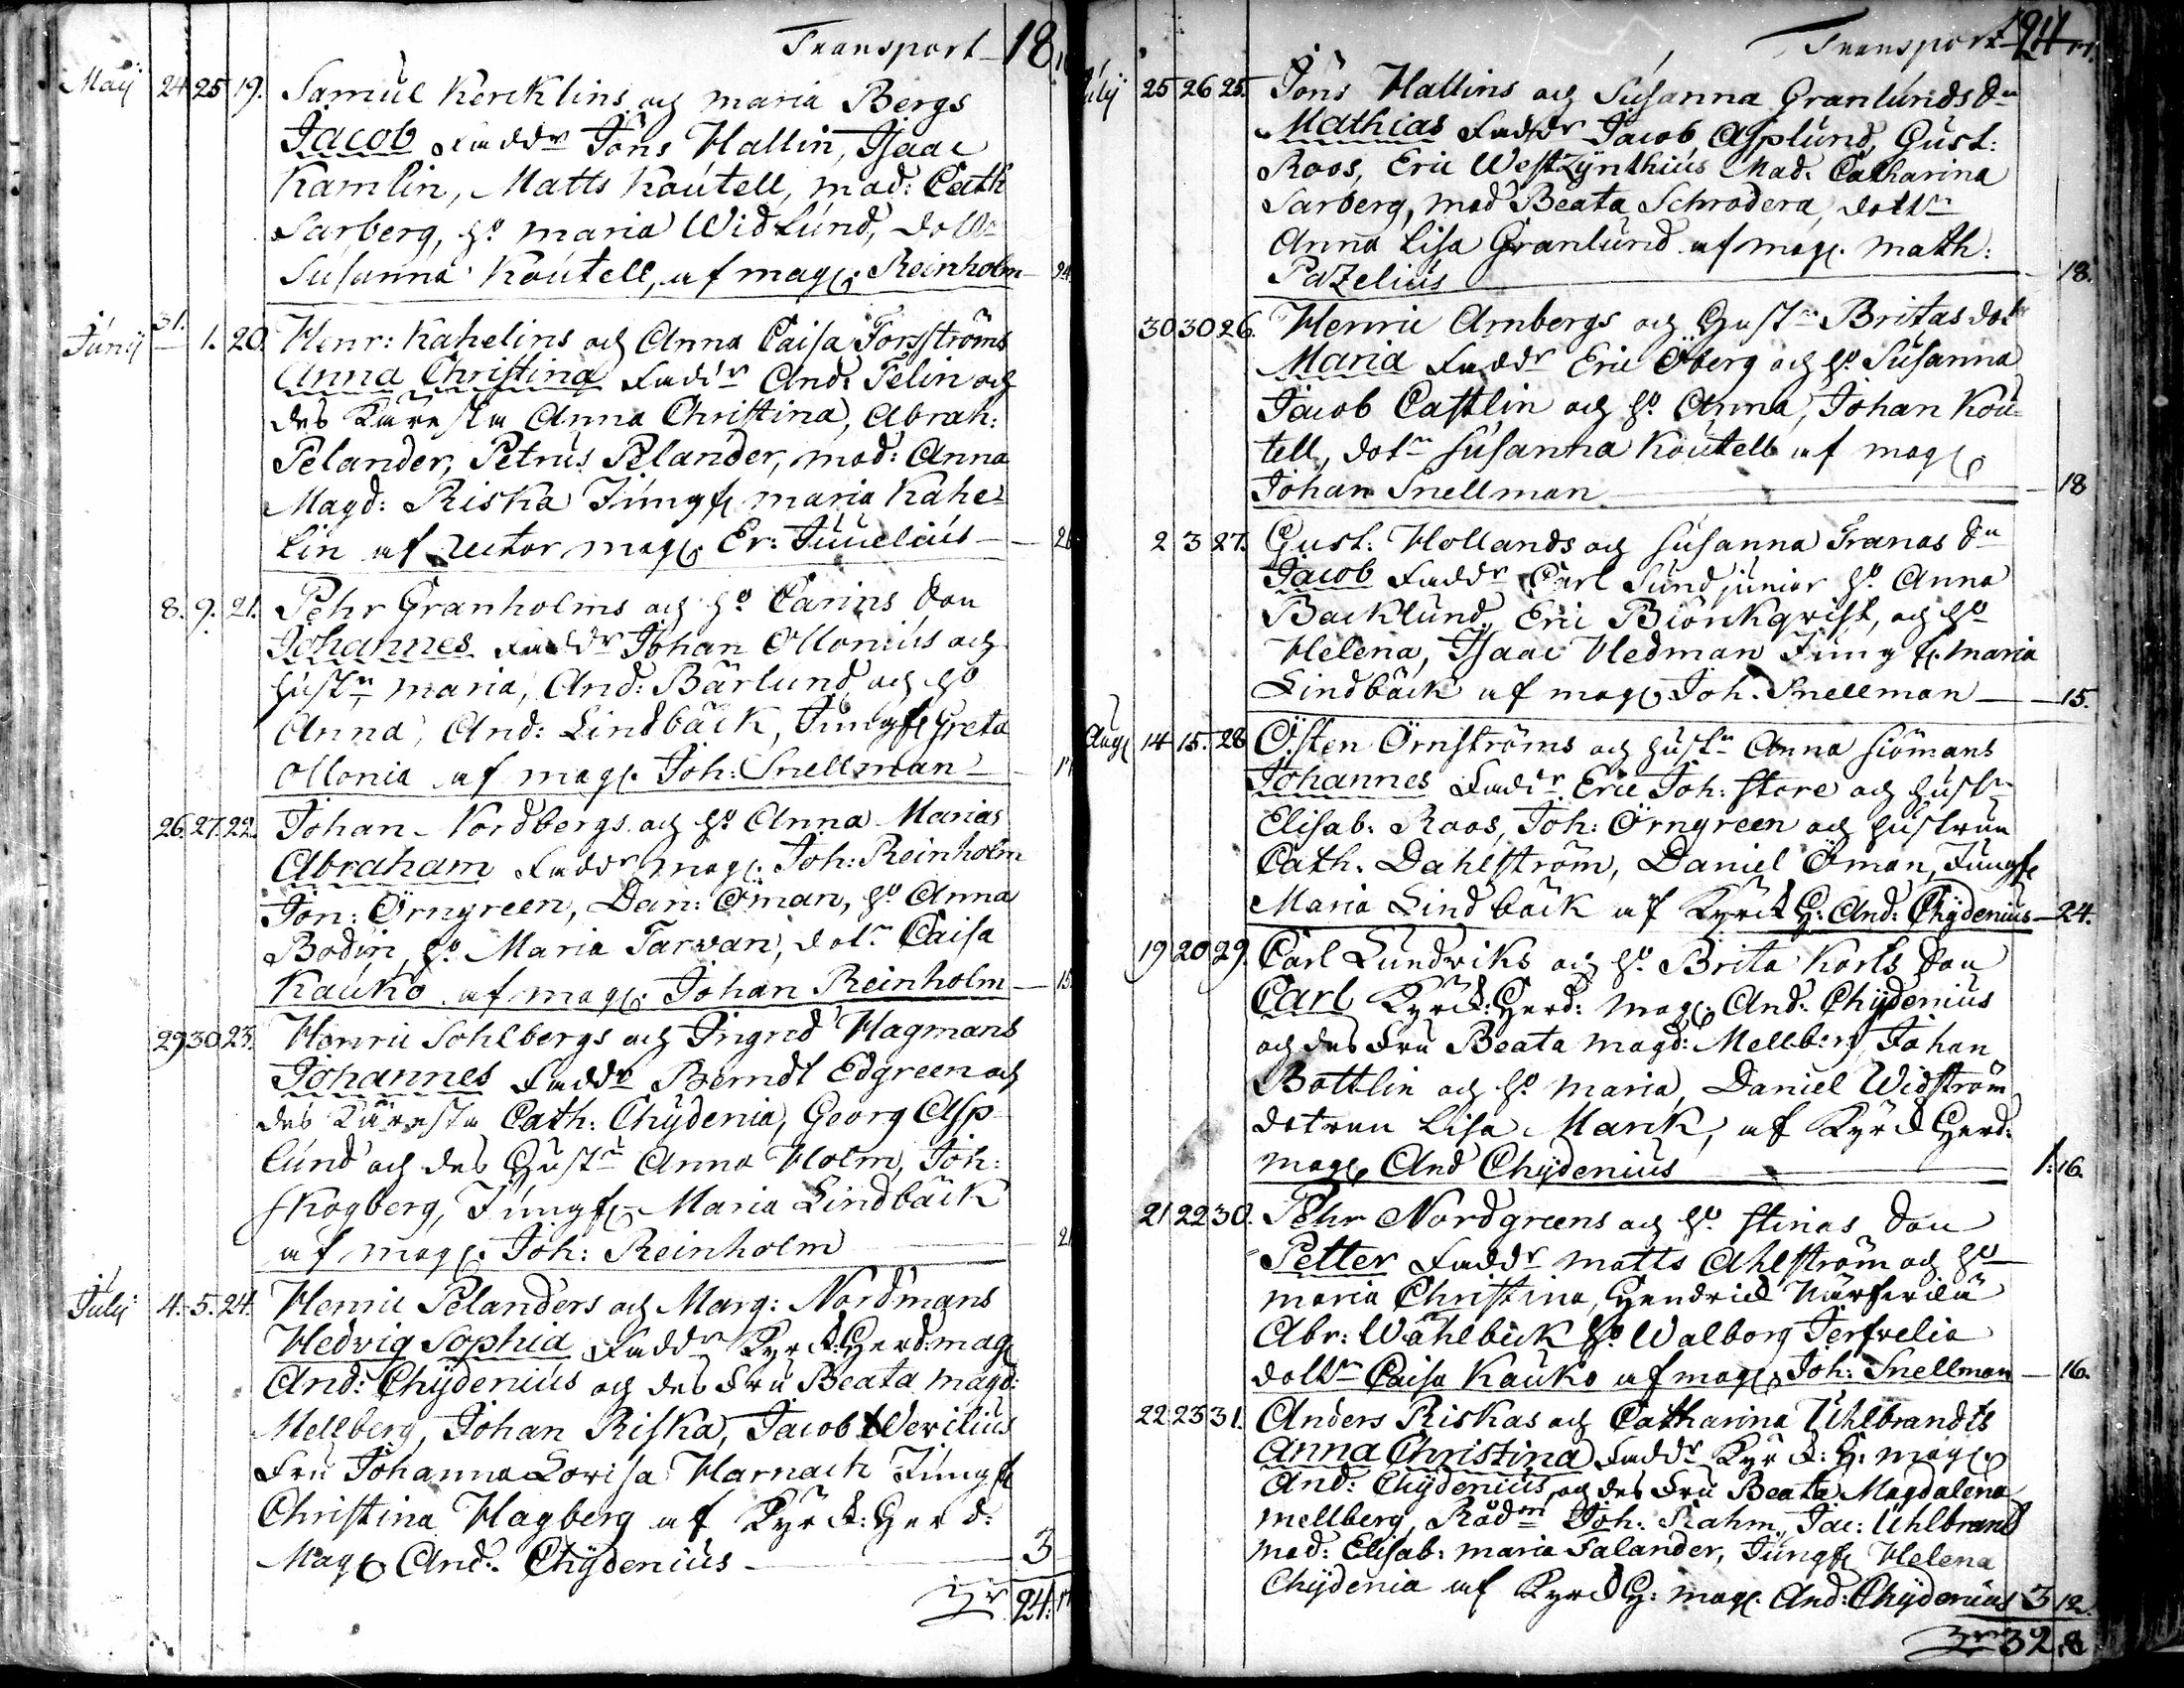 Transport 18
Maij 24 25 19. Samuel Kercklins och Maria Bergs
Jacob Faddr Jöns Hallin, Isaac
Kamlin, Matts Koutell, mad: Cath
Sarberg, ho Maria Widlund, dottr
Susanna Koutell, af mag: Reinholm — 24
Junij 31. 1. 20. Henr: Kahelins och Anna Caisa Forsströms
Anna Christina Faddr And: Felin och
des Käresta Anna Christina, Abrah:
Pelander, Petrus Pelander, mad: Anna
Magd: Riska Jungf Maria Kahe=
lin af Rector mag: Er: Juvelius — 26
8. 9. 21. Pehr Granholms och ho Carins Son
Johannes Faddr Johan Ollonius och
hustn Maria, And: Bärlund och ho
Anna, And: Lindbäck, Jungf Greta
Ollonia af mag: Joh: Snellman — 17
26. 27. 22. Johan Nordbergs och ho Anna Marias
Abraham Faddr mag: Joh: Reinholm
Jon: Örngreen, Dan: Öman, ho Anna
Bodin, ho Maria Tarvan, dotn Caisa
Kauko af mag: Johan Reinholm — 15
29 30 23. Henric Sohlbergs och Ingrid Hagmans
Johannes Faddr Berndt Edgreen och
des Käresta Cath: Chydenia, Georg Asp-
lund och des Hustn Anna Holm, Joh:
Skogberg, Jungf Maria Lindbäck
af mag: Joh: Reinholm — 21
Julij 4. 5. 24. Henric Pelanders och Marg: Nordmans
Hedvig Sophia Faddr Kyrck:Herd: mag
And: Chydenius och des Fru Beata Magd:
Mellberg, Johan Riska, Jacob Werilius
Fru Johanna Lovisa Harnach Jungf
Christina Hagberg af Kyrck:Herd:
Mag: And: Chydenius — 3
24: 17
Transport 24 17.
Julij 25 26 25. Jöns Hallins och Susanna Granlunds Sn
Mathias Faddr Jacob Asplund, Gust:
Roos, Eric Westzynthius Mad: Catharina
Sarberg, mad Beata Schrodera, dottn
Anna Lisa Granlund af mag: Math:
Pazelius — 18.
30 30 26. Henric Arnbergs och Hustn Britas dotr
Maria Faddr Eric Öberg och ho Susanna
Jacob Castlin och ho Anna, Johan Kou=
tell, dotn Susanna Koutell af mag
Johan Snellman — 18
2 3 27. Gust: Hollands och Susanna Tranas Sn
Jacob Faddr Carl Sund junior ho Anna
Backlund, Eric Biörkqvist, och ho
Helena, Isaac Hedman Jungf. Maria
Lindbäck af mag: Joh. Snellman — 15.
Aug 14 15. 28 Östen Örnströms och hustn Anna Siömans
Johannes Faddr Eric Joh: Store och hustn
Elisab: Roos, Joh: Örngreen och hustrun
Cath: Dahlström, Daniel Öman, Jungf
Maria Lindbäck af Kyrck H: And: Chydenius — 24.
19 20 29. Carl Lundviks och ho Brita Karls Son
Carl Kyrck:Herd: mag: And: Chydenius
och des Fru Beata Magd: Mellberg, Johan
Bottlin och ho Maria, Daniel Widström
dotren Lisa Marck, af Kyrck Herd:
mag: And Chydenius — 1: 16.
21 22 30. Pehr Nordgreens och ho Stinas Son
Petter Faddr Matts Ahlström och ho
Maria Christina, Hendrick
Abr: Wahlbeck ho Walborg Jerfvelia
dottn Caisa Kauko af mag: Joh: Snellman — 16.
22 23 31. Anders Riskas och Catharina Uhlbrandts
Anna Christina Faddr Kyrck: H: mag:
And: Chydenius, och des Fru Beata Magdalena
Mellberg, Rådm Joh: Rahm, Jac: Uhlbrand
Mad: Elisab: Maria Salander, Jungf Helena
Chydenia af Kyrck H: mag: And: Chydenius 3 12.
32. 8